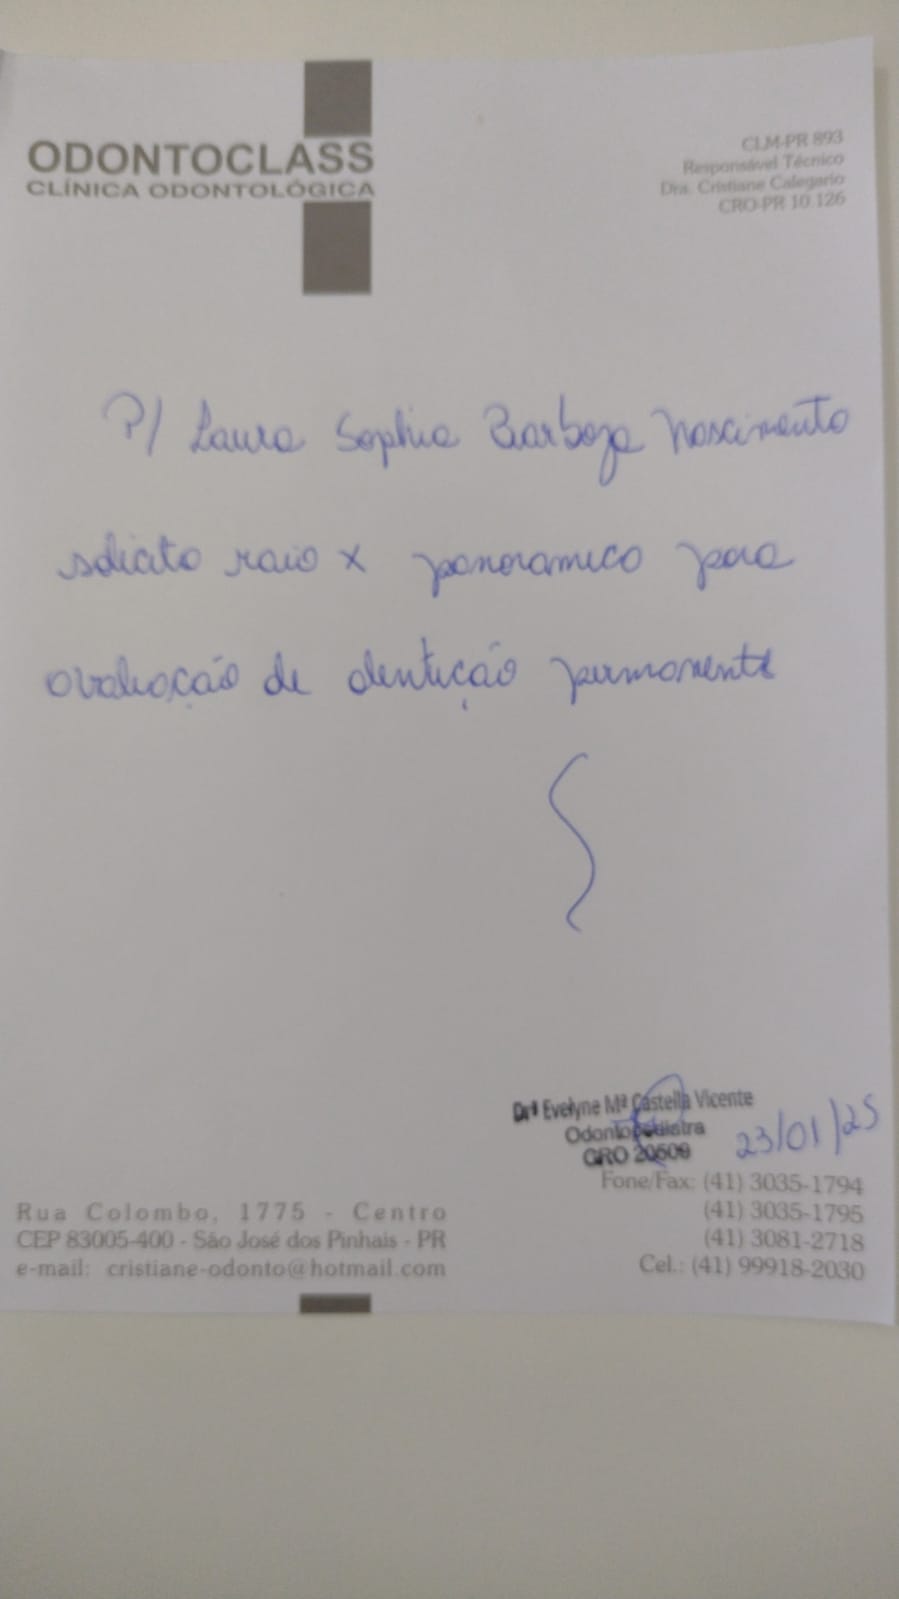 ODONTOCLASS
CLÍNICA ODONTOLÓGICA
CLM-PR 893
Responsável Técnico
Dra. Cristiane Calegario
CRO-PR 10.126
P/ Laura Sophia Barboza Nascimento
solicito raio x panoramico para
avaliação de dentição permanente
Drª Evelyne Mª Castella Vicente
Odontopediatra
CRO 20509
23/01/25
Fone/Fax: (41) 3035-1794
(41) 3035-1795
(41) 3081-2718
Cel.: (41) 99918-2030
Rua Colombo, 1775 - Centro
CEP 83005-400 - São José dos Pinhais - PR
e-mail: cristiane-odonto@hotmail.com